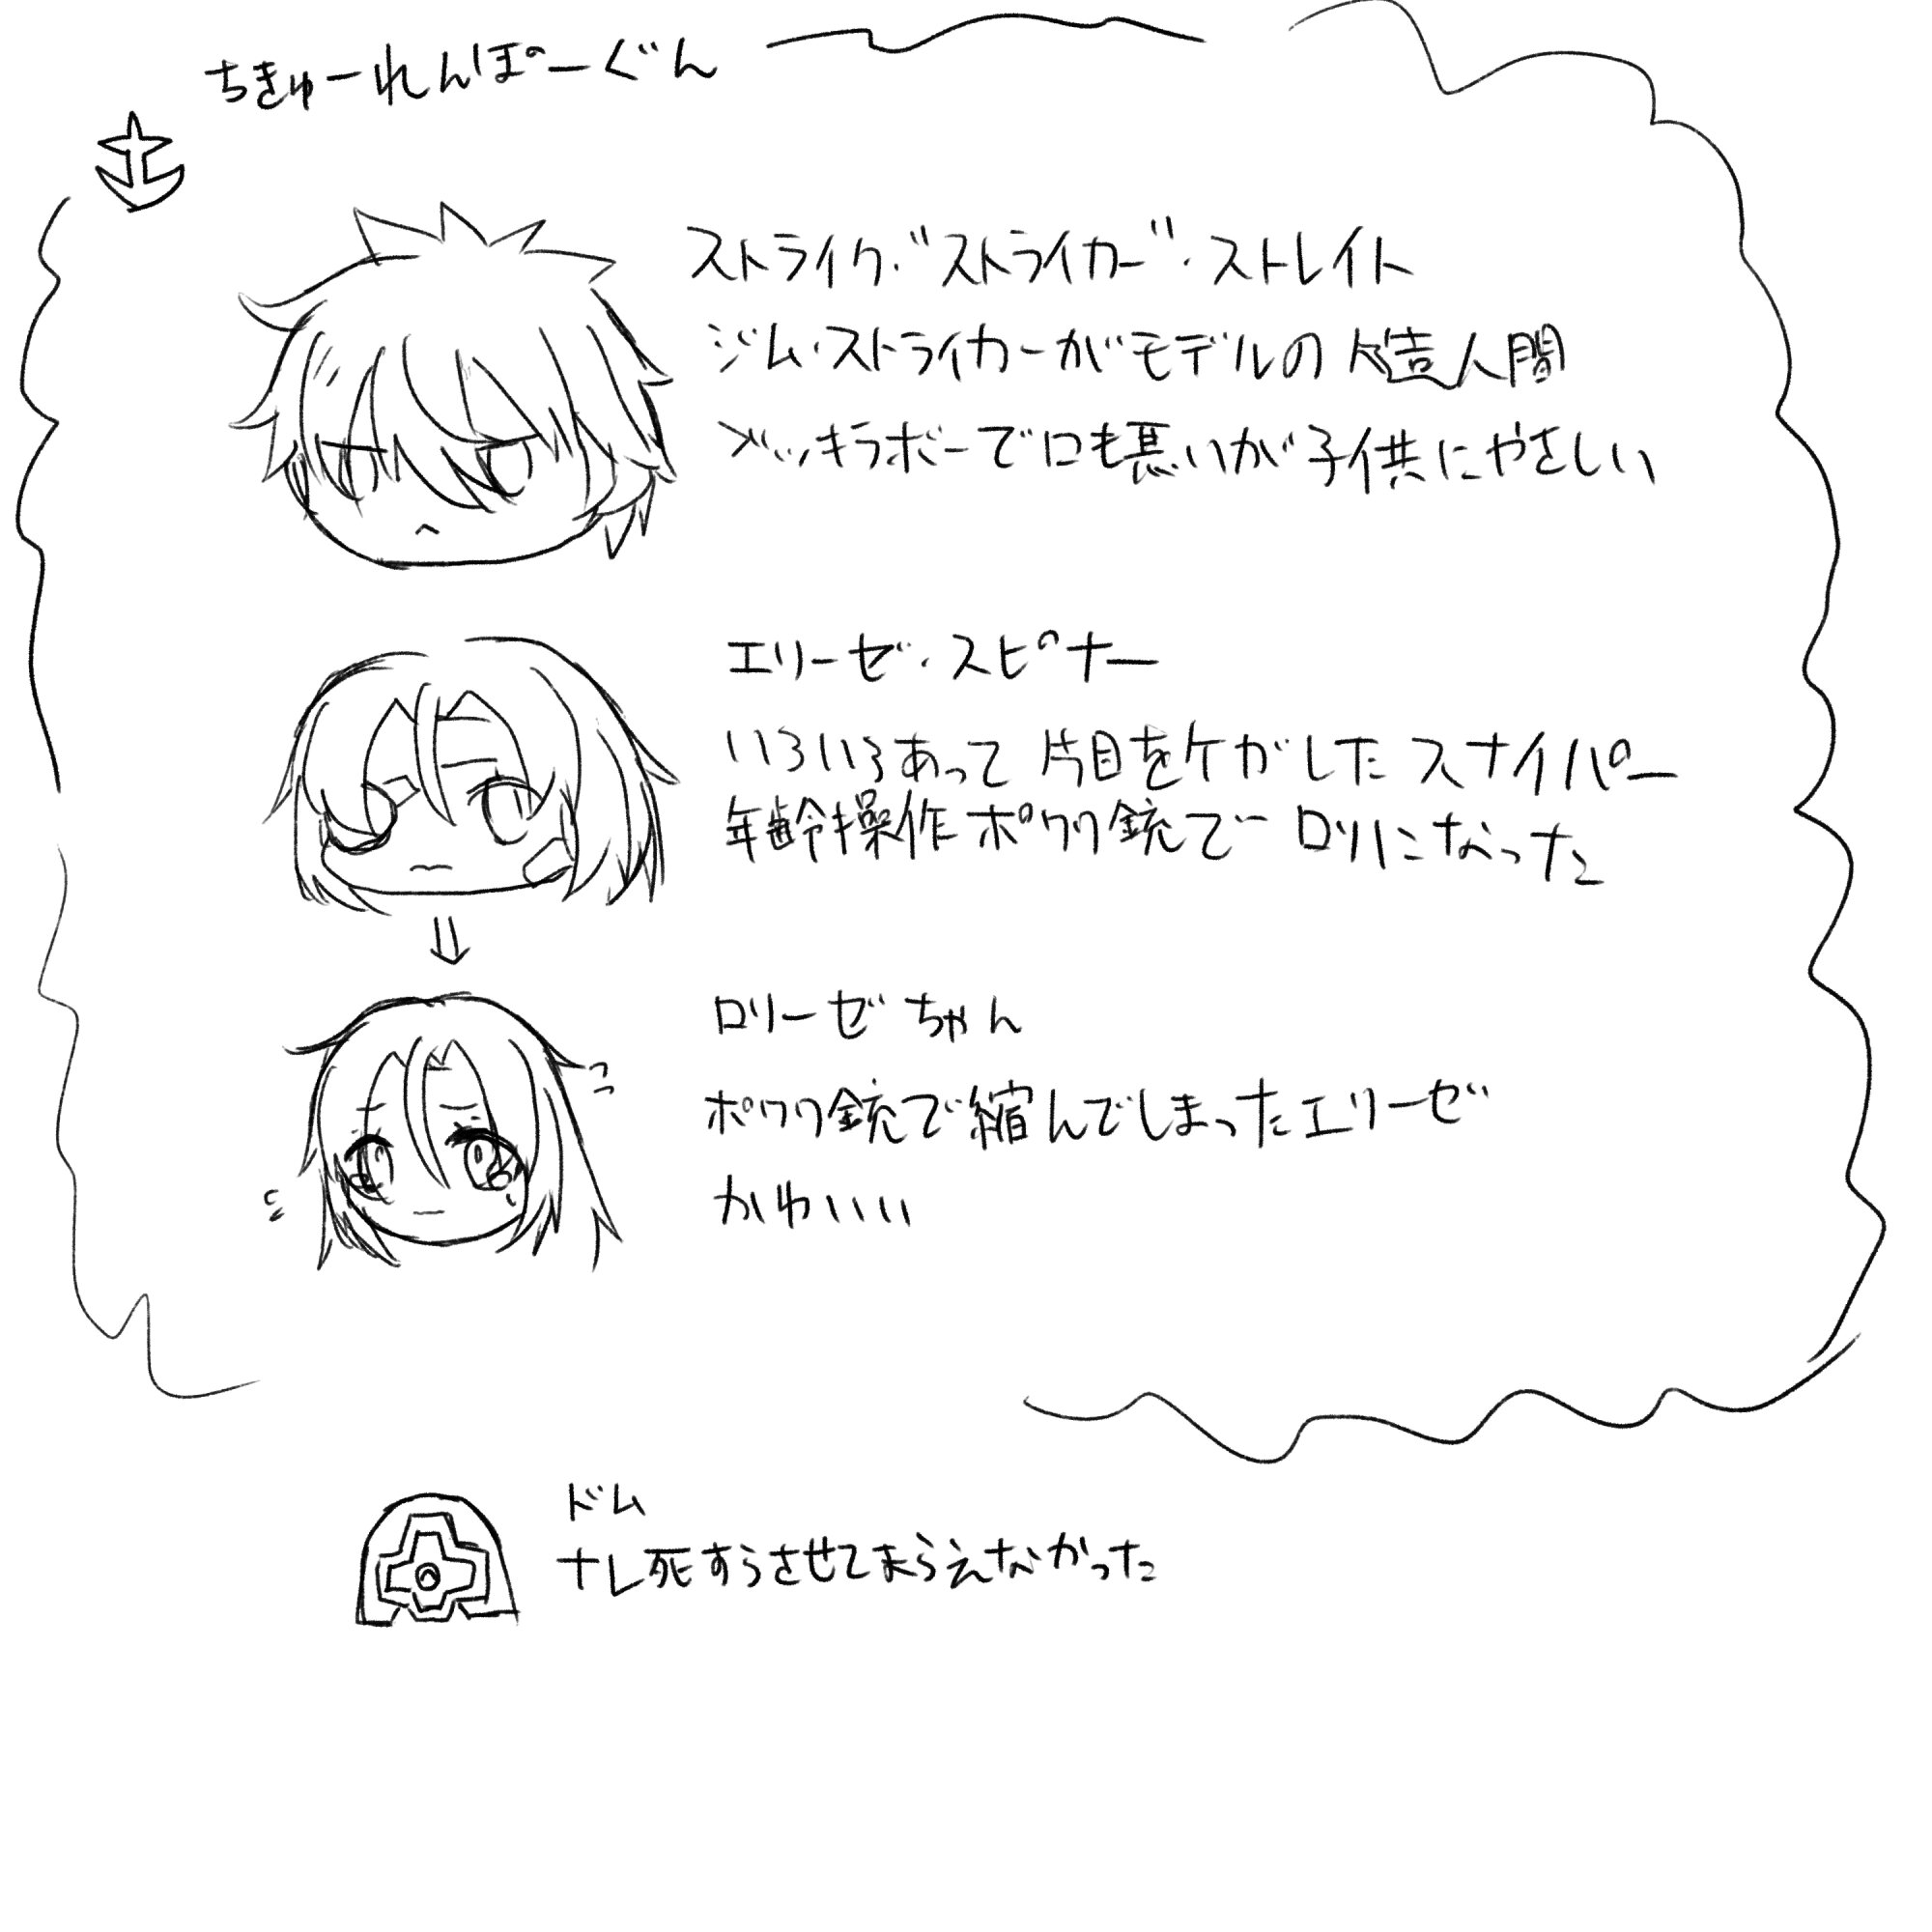 ちきゅーれんぽーぐん
ストライク・"ストライカー"・ストレイト
ジム・ストライカーがモデルの人造人間
ブッキラボーで口も悪いが子供にやさしい
エリーゼ・スピナー
いろいろあって片目をケガしたスナイパー
年齢操作ポワワ銃でロリになった
ロリーゼちゃん
ポワワ銃で縮んでしまったエリーゼ
かわいい
ドム
ナレ死すらさせてもらえなかった